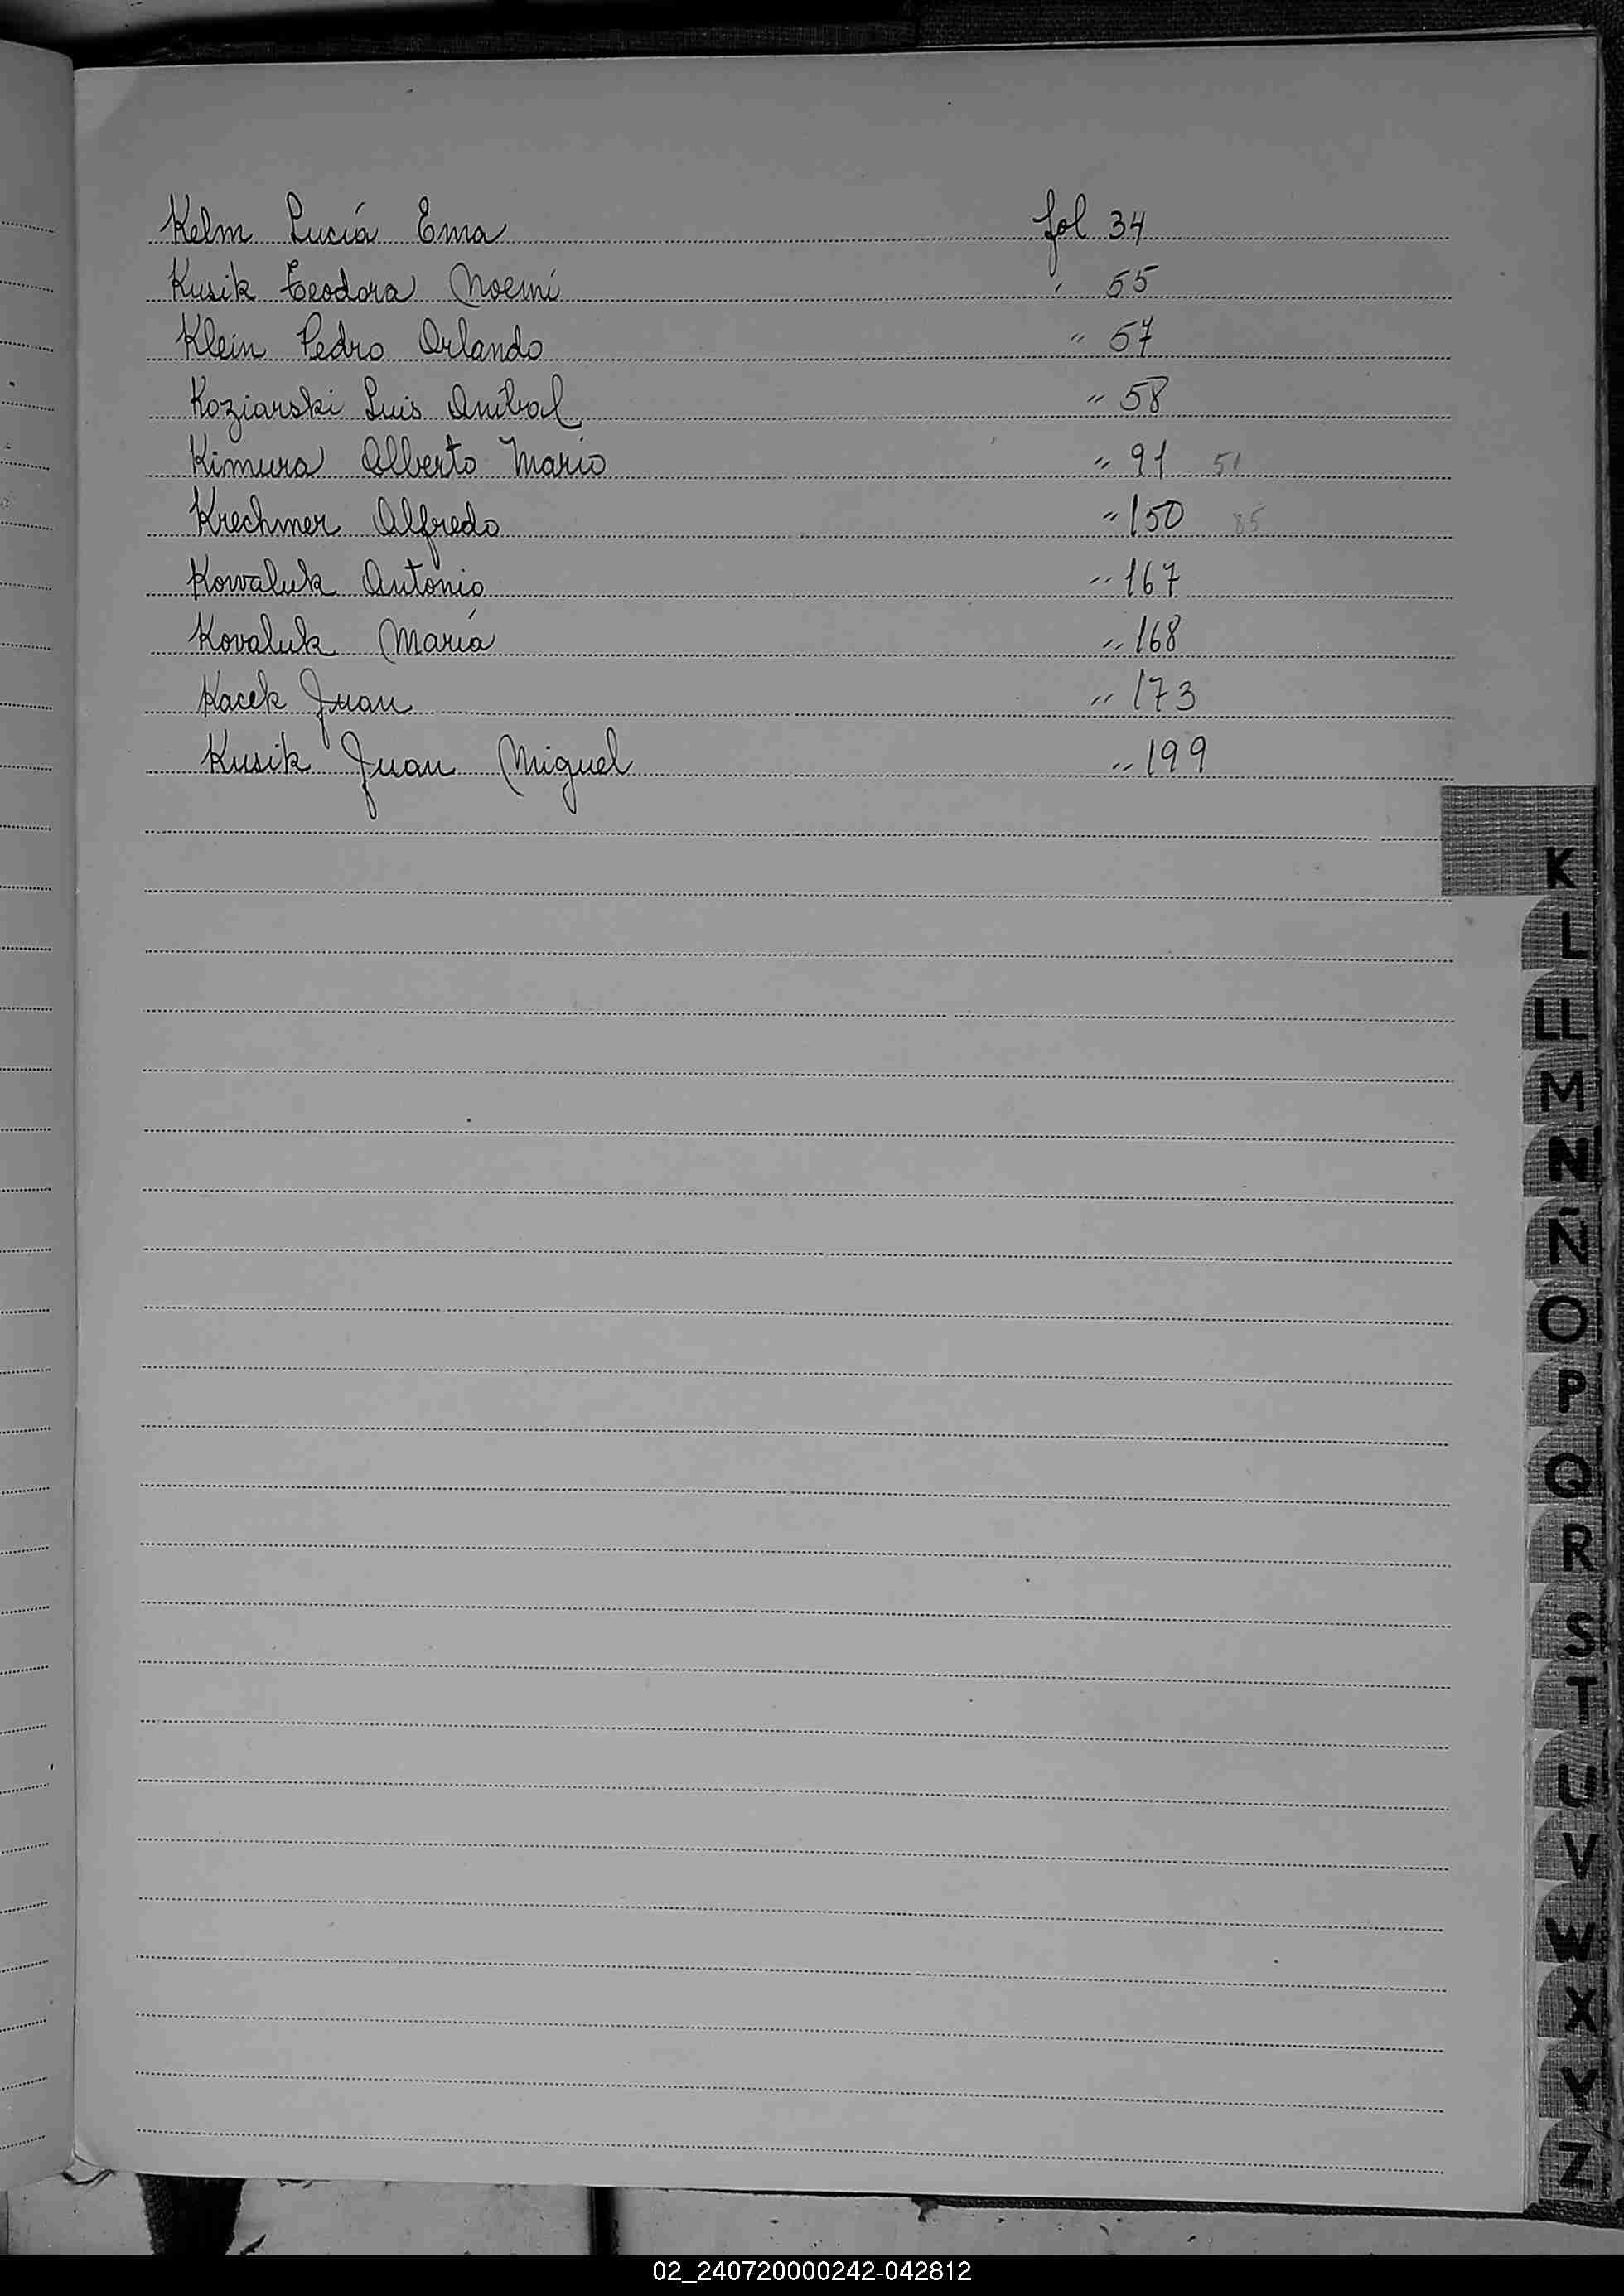 Kelm Lucía Ema fol 34
Kusik Teodora Noemí " 55
Klein Pedro Orlando " 57
Koziarski Luis Aníbal " 58
Kimura Alberto Mario " 91 51
Krechmer Alfredo " 150 85
Kowaluk Antonio " 167
Kovaluk María " 168
Kacek Juan " 173
Kusik Juan Miguel " 199
K
L
LL
M
N
Ñ
O
P
Q
R
S
T
U
V
W
X
Y
Z
02_240720000242-042812